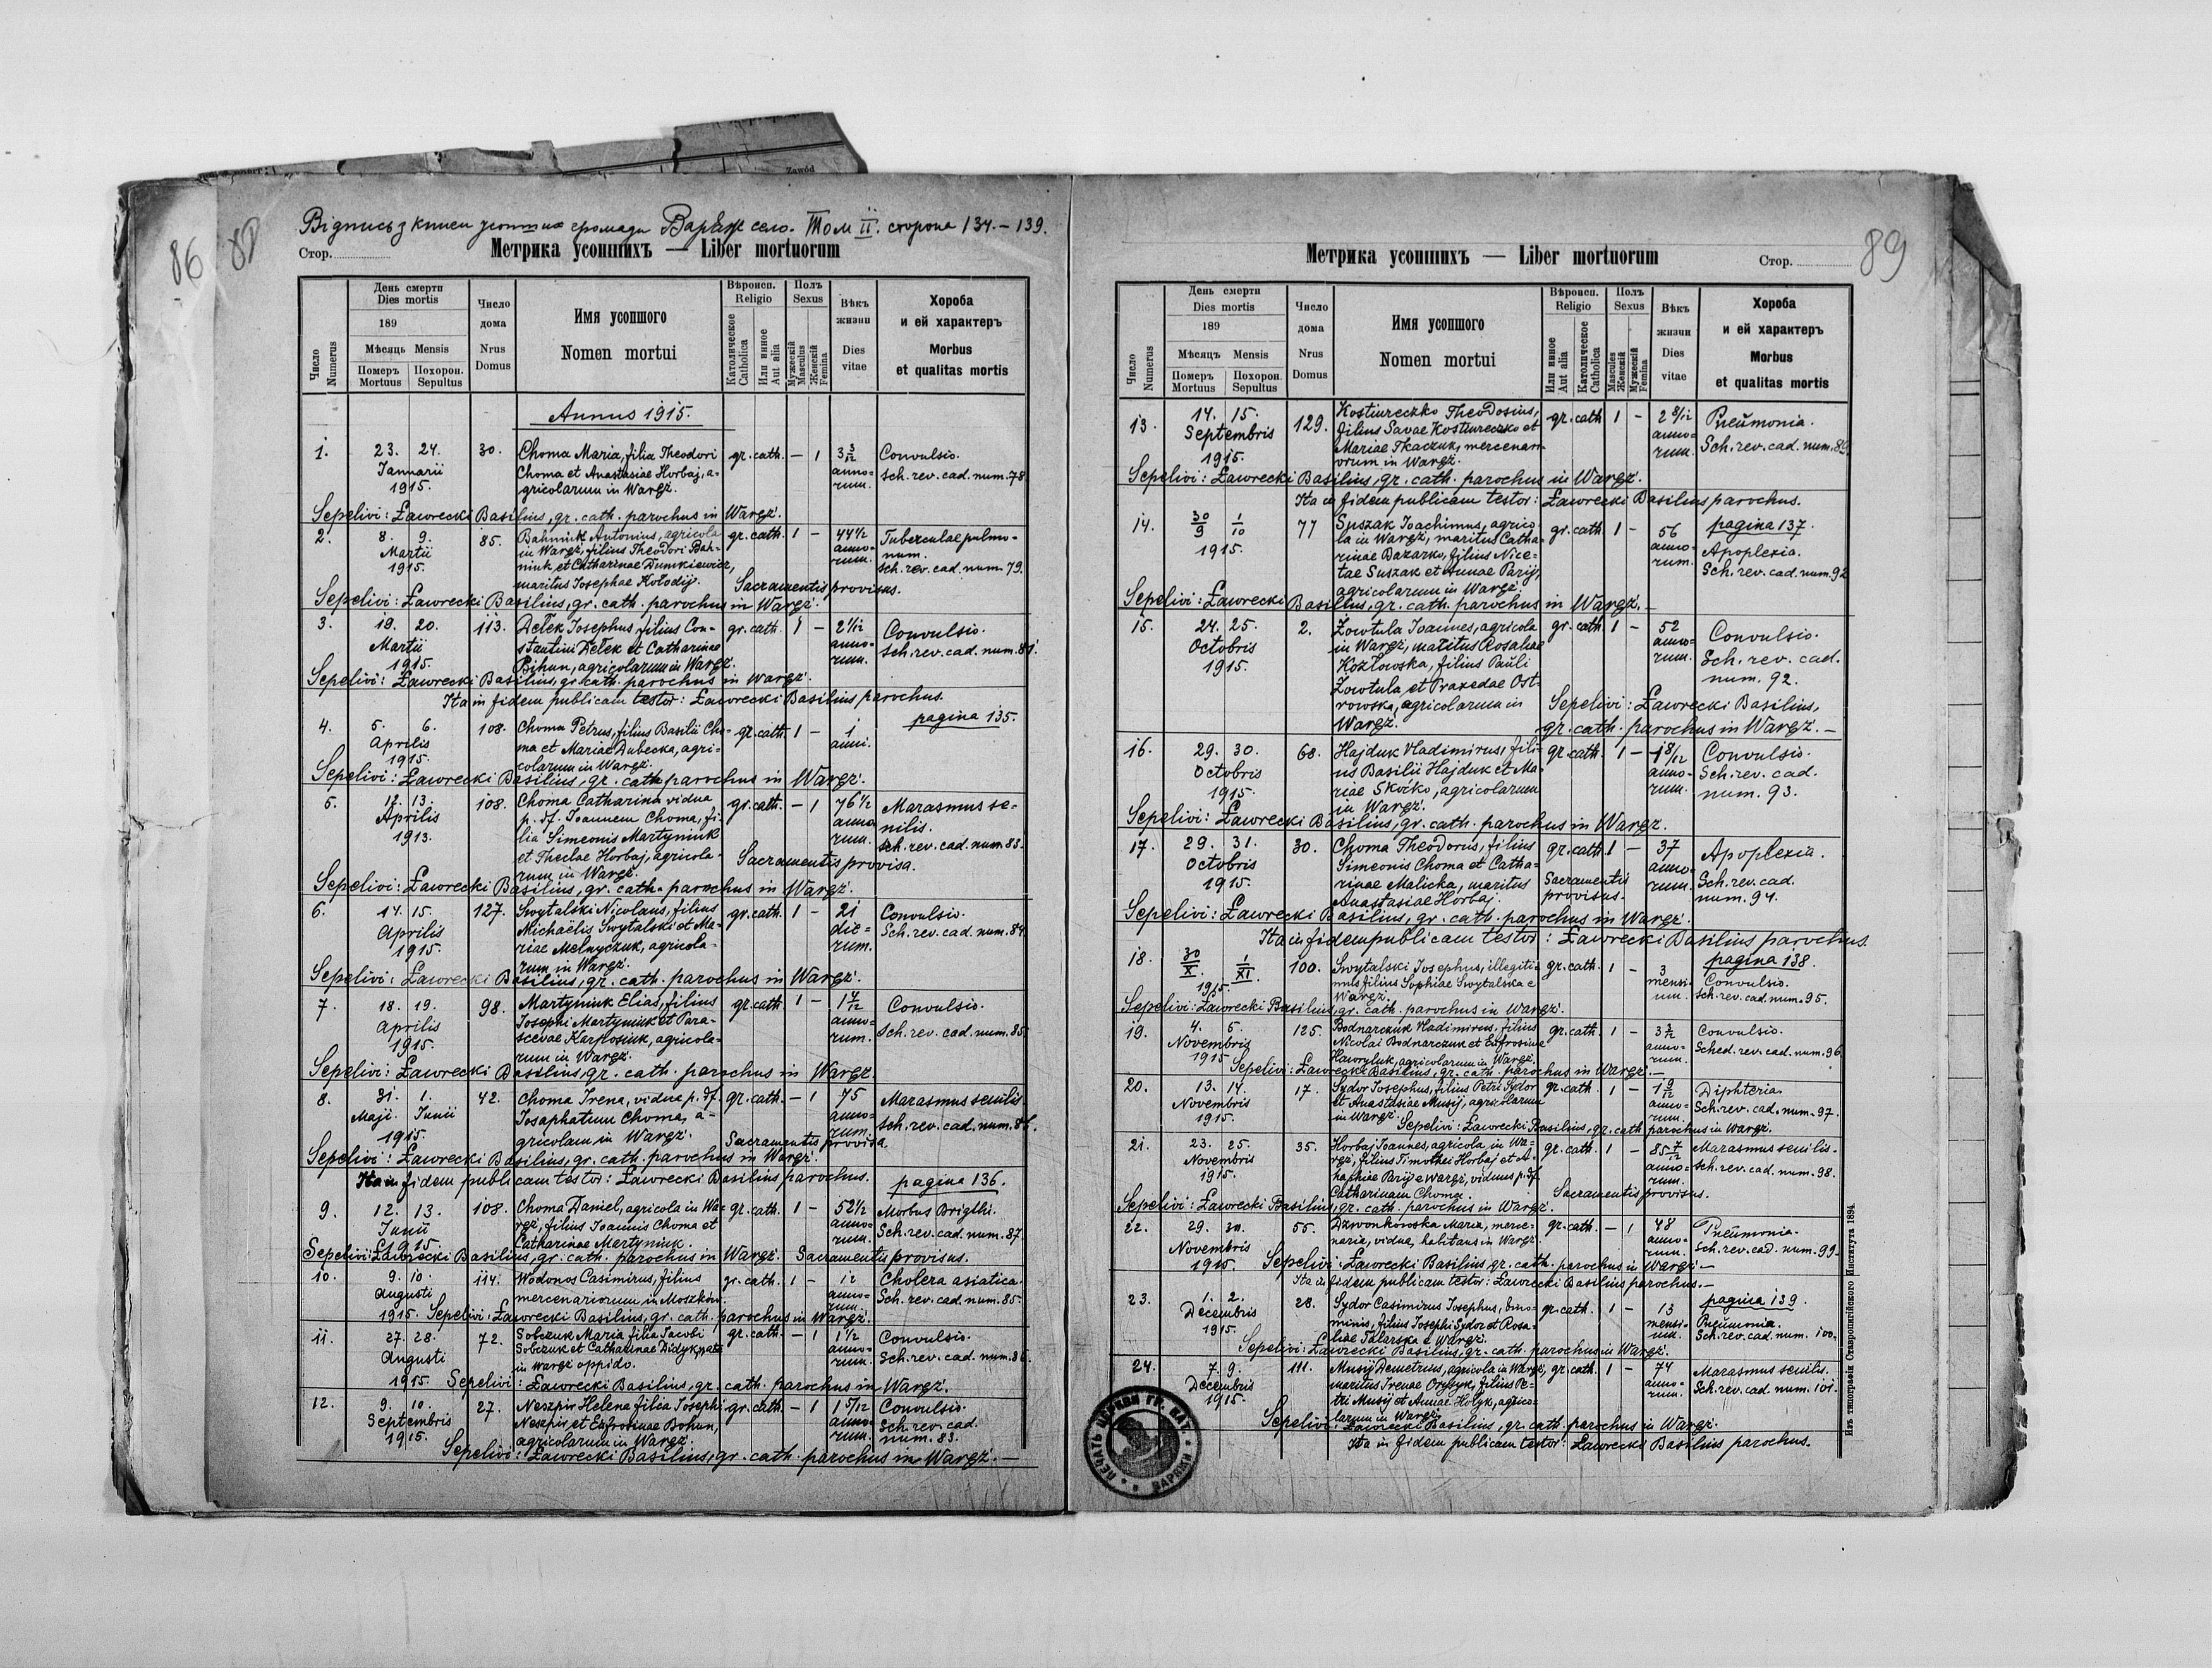 Відпись з книги усопших громади Варяж село. Том II. сторона 134.–139.
86
89
Стор.
Метрика усопшихъ — Liber mortuorum
Число
Numerus
День смерти
Dies mortis
189
Мѣсяць Mensis
Померъ Похорон.
Mortuus Sepultus
Число
дома
Nrus
Domus
Имя усопшого
Nomen mortui
Вѣроисп.
Religio
Католическое
Catholica
Или инное
Aut alia
Полъ
Sexus
Мужескій
Masculus
Женскій
Femina
Вѣкъ
жизни
Dies
vitae
Хороба
и ей характеръ
Morbus
et qualitas mortis
Annus 1915.
1. 23. 24. 30. Choma Maria, filia Theodori gr. cath. – 1 3 3/12 Convulsio.
Januarii Choma et Anastasiae Horbaj, a- anno- Sch. rev. cad. num. 78
1915. gricolarum in Wargż. rum.
Sepelivi: Ławrecki Basilius, gr. cath. parochus in Wargż.
2. 8. 9. 85. Bahniuk Antonius, agricola gr. cath. 1 – 44 1/2 Tuberculae pulmo-
Martii in Wargż, filius Theodori Bah- anno- num.
1915. niuk et Catharinae Dumkiewicz, rum. Sch. rev. cad. num. 79.
maritus Josephae Kołodij. Sacramentis provisus.
Sepelivi: Ławrecki Basilius, gr. cath. parochus in Wargż.
3. 19. 20. 113. Dełek Josephus, filius Con- gr. cath. 1 – 2 1/12 Convulsio.
Martii stantini Dełek et Catharinae anno- Sch. rev. cad. num. 81.
1915. Bihun, agricolarum in Wargż. rum.
Sepelivi: Ławrecki Basilius, gr. cath. parochus in Wargż.
Ita in fidem publicam testor: Ławrecki Basilius parochus.
4. 5. 6. 108. Choma Petrus, filius Basilii Cho- gr. cath. 1 – 1 pagina 135.
Aprilis ma et Mariae Dubecka, agri- anni.
1915. colarum in Wargż.
Sepelivi: Ławrecki Basilius, gr. cath. parochus in Wargż.
5. 12. 13. 108. Choma Catharina vidua gr. cath. – 1 76 1/2 Marasmus se-
Aprilis p. df. Joannem Choma, fi- anno- nilis.
1913. lia Simeonis Martyniuk rum. Sch. rev. cad. num. 83.
et Theclae Horbaj, agricola- Sacramentis provisa.
rum in Wargż.
Sepelivi: Ławrecki Basilius, gr. cath. parochus in Wargż.
6. 14. 15. 127. Swytalski Nicolaus, filius gr. cath. 1 – 21 Convulsio.
Aprilis Michaëlis Swytalski et Ma- die- Sch. rev. cad. num. 84.
1915. riae Melnyczuk, agricola- rum.
rum in Wargż.
Sepelivi: Ławrecki Basilius, gr. cath. parochus in Wargż.
7. 18. 19. 98. Martyniuk Elias, filius gr. cath. 1 – 1 4/12 Convulsio.
Aprilis Josephi Martyniuk et Para- anno- Sch. rev. cad. num. 85.
1915. scevae Karposiuk, agricola- rum.
rum in Wargż.
Sepelivi: Ławrecki Basilius, gr. cath. parochus in Wargż.
8. 31. 1. 42. Choma Irena, vidua p. df. gr. cath. – 1 75 Marasmus senilis.
Maji. Junii Josaphatum Choma, a- anno- Sch. rev. cad. num. 86.
1915. gricolam in Wargż. Sacramentis provisa. rum.
Sepelivi: Ławrecki Basilius, gr. cath. parochus in Wargż.
Ita in fidem publicam testor: Ławrecki Basilius parochus. pagina 136.
9. 12. 13. 108. Choma Daniel, agricola in Wa- gr. cath. 1 – 52 1/2 Morbus Brigthi.
Junii rgż, filius Joannis Choma et anno- Sch. rev. cad. num. 87.
1915. Catharinae Martyniuk. rum.
Sepelivi: Ławrecki Basilius, gr. cath. parochus in Wargż. Sacramentis provisus.
10. 9. 10. 114. Wodonos Casimirus, filius gr. cath. 1 – 12 Cholera asiatica.
Augusti mercenariorum, in Moszków. anno- Sch. rev. cad. num. 85.
1915. Sepelivi: Ławrecki Basilius, gr. cath. parochus in Wargż. rum.
11. 27. 28. 72. Sobczuk Maria filia Jacobi gr. cath. – 1 1 1/2 Convulsio.
Augusti Sobczuk et Catharinae Didyk, nata anno- Sch. rev. cad. num. 86.
in Wargż oppido. rum.
1915. Sepelivi: Ławrecki Basilius, gr. cath. parochus in Wargż.
12. 9. 10. 27. Neszpir Helena filia Josephi gr. cath. – 1 1 5/12 Convulsio.
Septembris Neszpir et Eufrosinae Bohun, anno- Sch. rev. cad.
1915. agricolarum in Wargż. rum. num. 83.
Sepelivi: Ławrecki Basilius, gr. cath. parochus in Wargż. —
Метрика усопшихъ — Liber mortuorum
Стор.
89
Число
Numerus
День смерти
Dies mortis
189
Мѣсяцъ Mensis
Померъ Похорон.
Mortuus Sepultus
Число
дома
Nrus
Domus
Имя усопшого
Nomen mortui
Вѣроисп.
Religio
Или инное
Aut alia
Католическое
Catholica
Полъ
Sexus
Mascules
Женскій
Мужескій
Femina
Вѣкъ
жизни
Dies
vitae
Хороба
и ей характеръ
Morbus
et qualitas mortis
13. 14. 15. 129. Kostiureczko Theodosius, gr. cath 1 – 2 8/12 Pneumonia.
Septembris filius Savae Kostiureczko et anno- Sch. rev. cad. num. 89.
1915. Mariae Tkaczuk, mercenari- rum.
orum in Wargż.
Sepelivi: Ławrecki Basilius, gr. cath. parochus in Wargż.
Ita in fidem publicam testor: Ławrecki Basilius parochus.
14. 30/9 1/10 77 Suszak Joachimus, agrico- gr. cath 1 – 56 pagina 137.
1915. la in Wargż, maritus Catha- anno- Apoplexia.
rinae Bazarko, filius Nice- rum. Sch. rev. cad. num. 92
tae Suszak et Annae Parij,
agricolarum in Wargż.
Sepelivi: Ławrecki Basilius, gr. cath. parochus in Wargż. —
15. 24. 25. 2. Zowtula Joannes, agricola gr. cath. 1 – 52 Convulsio.
Octobris in Wargż, maritus Rosaliae anno- Sch. rev. cad.
1915. Kozłowska, filius Pauli rum. num. 92.
Zowtula et Praxedae Ost- Sepelivi: Ławrecki Basilius,
rowska, agricolarum in gr. cath. parochus in Wargż. —
Wargż.
16. 29. 30. 68. Hajduk Vladimirus, fili- gr. cath. 1 – 1 8/12 Convulsio.
Octobris us Basilii Hajduk et Ma- anno- Sch. rev. cad.
1915. riae Skóćko, agricolarum rum. num. 93.
in Wargż.
Sepelivi: Ławrecki Basilius, gr. cath. parochus in Wargż.
17. 29. 31. 30. Choma Theodorus, filius gr. cath. 1 – 37 Apoplexia.
Octobris Simeonis Choma et Catha- anno- Sch. rev. cad.
1915. rinae Malicka, maritus Sacramentis rum. num. 94.
Anastasiae Horbaj. provisus.
Sepelivi: Ławrecki Basilius, gr. cath. parochus in Wargż.
Ita in fidem publicam testor: Ławrecki Basilius parochus.
18. 30/X. 1/XI 100. Swytalski Josephus, illegiti- gr. cath. 1 – 3 pagina 138.
1915. mus filius Sophiae Swytalska e mensi- Convulsio.
Wargż. um. Sch. rev. cad. num. 95.
Sepelivi: Ławrecki Basilius, gr. cath. parochus in Wargż.
19. 4. 5. 125. Bodnarczuk Vladimirus, filius gr. cath. 1 – 3 3/12 Convulsio.
Novembris Nicolai Bodnarczuk et Eufrosinae anno- Sched. rev. cad. num. 96.
1915 Hawryluk, agricolarum in Wargż. rum.
Sepelivi: Ławrecki Basilius, gr. cath. parochus in Wargż. —
20. 13. 14. 17. Sydor Josephus, filius Petri Sydor gr. cath. 1 – 1 9/12 Diphteria.
Novembris et Anastasiae Musij, agricolarum anno- Sch. rev. cad. num. 97.
1915. in Wargż. rum.
Sepelivi: Ławrecki Basilius, gr. cath. parochus in Wargż.
21. 23. 25. 35. Horbaj Joannes, agricola, in Wa- gr. cath. 1 – 85 7/12 Marasmus senilis.
Novembris rgż, filius Timothei Horbaj et A- anno- Sch. rev. cad. num. 98.
1915. hafiiae Parij e Wargż, viduus p. df. rum.
Catharinam Choma. Sacramentis provisus.
Sepelivi: Ławrecki Basilius, gr. cath. parochus in Wargż.
22. 29. 30. 55. Dzwonkowska Maria, merce- gr. cath. – 1 48 Pneumonia.
Novembris naria, vidua, habitans in Wargż. anno- Sch. rev. cad. num. 99.
1915. Sepelivi: Ławrecki Basilius, gr. cath. parochus in Wargż. — rum.
Ita in fidem publicam testor: Ławrecki Basilius parochus. —
23. 1. 2. 28. Sydor Casimirus Josephus, bino- gr. cath. 1 – 13 pagina 139.
Decembris minis, filius Josephi Sydor et Rosa- mensi- Pneumonia.
1915. liae Talarska e Wargż. um. Sch. rev. cad. num. 100.
Sepelivi: Ławrecki Basilius, gr. cath. parochus in Wargż.
24. 7. 9. 111. Musij Demetrius, agricola in Wargż, gr. cath. 1 – 74 Marasmus senilis.
Decembris maritus Irenae Orysyk, filius Pe- anno- Sch. rev. cad. num. 101.
1915. tri Musij et Annae Holyk, agrico- rum.
larum in Wargż.
Sepelivi: Ławrecki Basilius, gr. cath. parochus in Wargż.
Ita in fidem publicam testor: Ławrecki Basilius parochus.
Изъ типографіи Ставропигійского Института 1894.
ПЕЧАТЬ ЦЕРКВИ ГР. КАТ.
Zawód